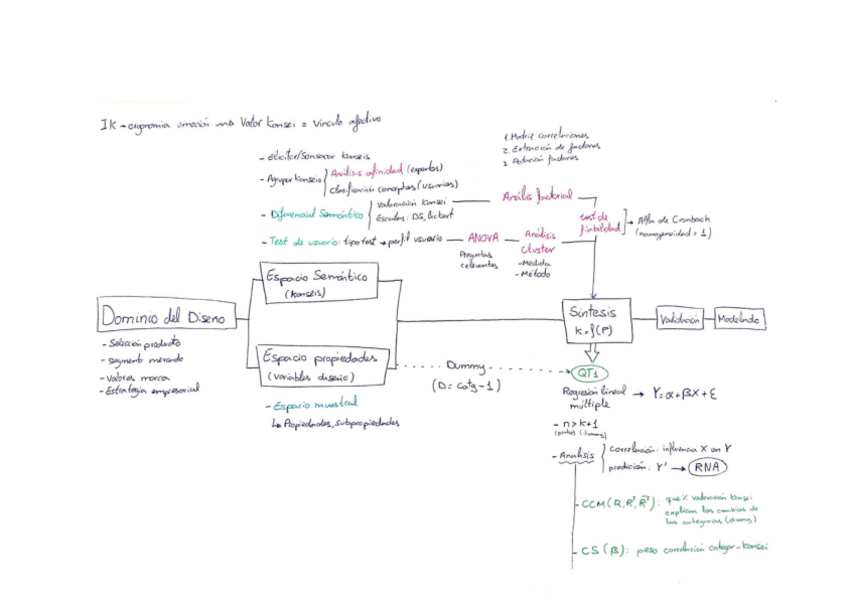 IK → ergonomia emoción → Valor kansei = Vínculo afectivo
1. Matriz correlaciones
2. Extracción de factores
3. Rotación factores
- Elicitor/Sensecar kanseis
- Agrupar kanseis
Análisis afinidad (expertos)
Clasificación conceptos (usuarios)
- Diferencial Semántico
Valoración kansei
Escalas: DS, likert
Análisis factorial
test de fiabilidad
Alfa de Cronbach
(homogeneidad = 1)
- Test de usuario: tipo test → perfil usuario
ANOVA
Preguntas
relevantes
Análisis
Cluster
- Medida
- Método
Dominio del Diseño
- Selección producto
- Segmento mercado
- Valores marca
- Estrategia empresarial
Espacio Semántico
(kanseis)
Espacio propiedades
(variables diseño)
- Espacio muestral
↳ Propiedades, subpropiedades
Síntesis
k = f(P)
Validación
Modelado
Dummy
(D = catg - 1)
QT1
Regresión lineal
múltiple
→ Y = α + βX + ε
- n > k+1
- Analisis
correlación: influencia X en Y
predicción: Y' → RNA
- CCM (R, R², R̄²): que % valoración kansei
explican los cambios de
las categorías (dummy)
- CS (β): peso correlación categor-kansei